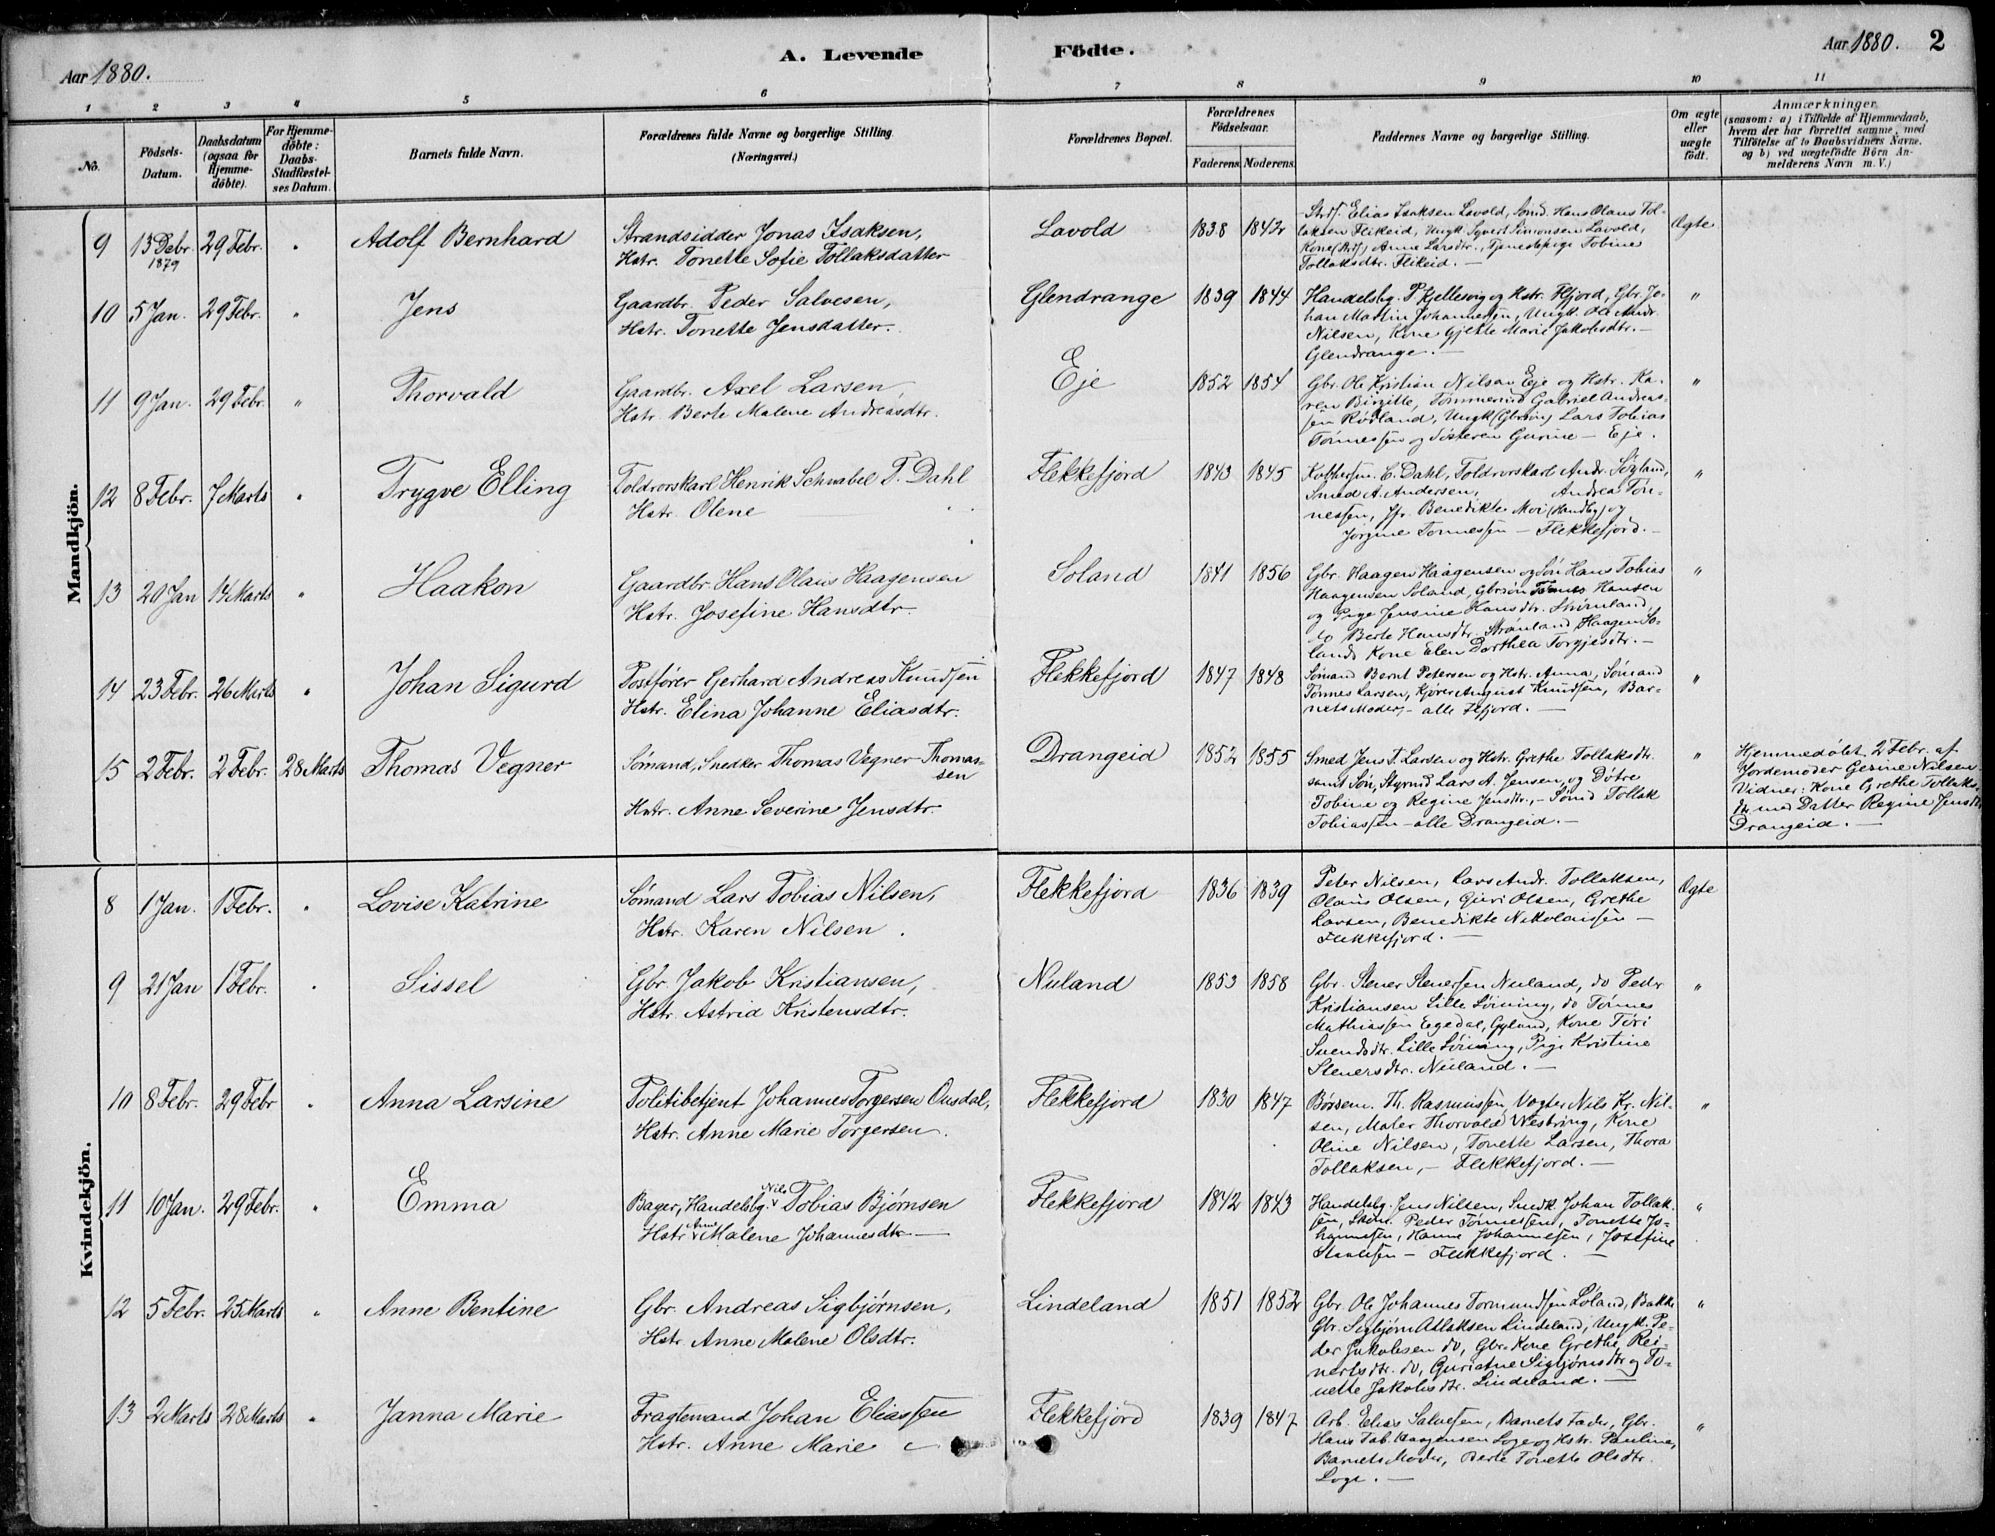 A. Levende Födte.
Aar 1880.
Aar 1880. 2
1 2 3 4 5 6 7 8 9 10 11
No. Födsels-Datum. Daabsdatum (ogsaa for Hjemme-döbte). For Hjemme-döbte: Daabs-Stadfæstel-ses Datum. Barnets fulde Navn. Forældrenes fulde Navne og borgerlige Stilling. (Næringsvei.) Forældrenes Bopæl. Forældrenes Födselsaar. Faderens. Moderens. Faddernes Navne og borgerlige Stilling. Om ægte eller uægte födt. Anmærkninger (saasom: a) i Tilfælde af Hjemmedaab, hvem der har forrettet samme, med Tilföielse af to Daabsvidners Navne, og b) ved uægtefödte Börn An-melderens Navn m. V.)
Mandkjön.
9 13 Debr. 1879 29 Febr. " Adolf Bernhard Strandsidder Jonas Isaksen, Lavold 1838 1842 Strs. Elias Isaksen Lavold, Sømd. Hans Olaus Tol- Ægte
Hstr. Tonette Sofie Tollaksdatter
laksen Flikeid, Ungk. Syvert Simonsen Lavold,
Kone (Strs) Anne Larsdtr., Tjenestepige Tobine
Tollaksdtr. Flikeid. —
10 5 Jan. 29 Febr. " Jens Gaardbr. Peder Salvesen, Glendrange 1839 1844 Handelsbg. P. Kjellesvig og Hstr. Ffjord, Gbr. Jo- "
Hstr. Tonette Jensdatter.
han Martin Johannesen, Ungk. Ole Andr.
Nilsen, Kone Gjette Marie Jakobsdtr. —
Glendrange. —
11 9 Jan. 29 Febr. " Thorvald Gaardbr. Axel Larsen, Eje 1852 1854 Gbr. Ole Kristian Nilsen Eje og Hstr. Ka- "
Hstr. Berte Malene Andreasdtr.
ren Birgitte, Tømmermd Gabriel Andreas-
sen Rødland, Ungk. (Gbrsøn) Lars Tobias
Tønnessen og Søsteren Gurine — Eje.
12 8 Febr. 7 Marts " Trygve Elling Toldrorskarl Henrik Schwabel T. Dahl Flekkefjord 1843 1845 E. Dahl, Toldrorskarl Andr. "
Hstr. Olene
Smed A. Andersen, Andrea Tøn-
nessen, Jfr. Benedikte Moi (Handlg) og
Jorgine Tønnessen — Flekkefjord. —
13 20 Jan 14 Marts " Haakon Gaardbr. Hans Olaus Haagensen Soland 1841 1856 Gbr. Haagen Haagensen og Søn Hans Tobias "
Hstr. Josefine Hansdtr.
Haagensen Soland, Gbrsøn Tønnes Hansen
og Pige Jensine Hansdtr. Strømland,
do Berte Hansdtr. Strømland, Haagen So-
lands Kone Elen Dorthea Torgjesdtr. —
14 23 Febr. 26 Marts " Johan Sigurd Postfører Gerhard Andreas Knudsen Flekkefjord 1847 1848 Sømand Bernt Petersen og Hstr. Anna, Sømand "
Hstr. Elina Johanne Eliasdtr.
Tønnes Larsen, Kjører August Knudsen, Bar-
nets Moder, — alle Ffjord. —
15 2 Febr. 2 Febr. 28 Marts Thomas Vegner Sømand, Snedker Thomas Vegner Thomas-sen Drangeid 1852 1855 Smed Jens T. Larsen og Hstr. Grethe Tollaksdtr. " Hjemmedøbt 2 Febr. af
Hstr. Anne Severine Jensdtr.
samt Søn, Styrmd Lars A. Jensen, og Døtre
Tobine og Regine Jensdtr., — Sømd Tollak
Tobiassen — alle Drangeid. —
Jordemoder Gesine Nilsen.
Vidner: Kone Grethe Tollaks-
dtr. med Datter Regine Jensdtr
Drangeid. —
Kvindekjön.
8 1 Jan. 1 Febr. " Lovise Katrine Sømand Lars Tobias Nilsen, Flekkefjord 1836 1839 Peter Nilsen, Lars Andr. Tollaksen, Ægte
Hstr. Karen Nilsen.
Olaus Olsen, Guri Olsen, Grethe
Larsen, Benedikte Nikolaussen —
Flekkefjord. —
9 21 Jan 1 Febr. " Sissel Gbr. Jakob Kristiansen, Nuland 1853 1858 Gbr. Stener Stenersen Nuland, do Peder "
Hstr. Astrid Kristensdtr.
Kristiansen Lille Løining, do Tønnes
Mathiassen Egedal, Gyland, Kone Tori
Svendsdtr. Lille Løining, Pige Kristine
Stenersdtr. Nuland. —
10 8 Febr. 29 Febr " Anna Larsine Politibetjent Johannes Torgersen Ousdal, Flekkefjord 1830 1847 Børsem. Th. Rasmussen, Vogter Nils Kr. Nil- "
Hstr. Anne Marie Torgersen.
sen, Maler Thorvald Westring, Kone
Oline Nilsen, Tonette Larsen, Thora
Tollaksen, — Flekkefjord. —
11 10 Jan. 29 Febr. " Emma Bager, Handelsbg. Nils Tobias Bjørnsen Flekkefjord 1842 1843 Handelsbg. Jens Nilsen, Snedk. Johan Tollak- "
Hstr Anne Malene Johannesdtr —
sen, Skom. Peder Tønnessen, Tonette Jo-
hannesen, Hanne Johannesen, Josefine
Staalesen — Flekkefjord. —
12 5 Febr. 25 Marts " Anne Bentine Gbr. Andreas Sigbjørnsen, Lindeland 1851 1852 Gbr. Ole Johannes Tormundsen Løland, Bakke "
Hstr. Anne Malene Olsdtr.
Gbr. Sigbjørn Atlaksen Lindeland, Ungk. Pe-
der Jakobsen do, Gbr. Kone Grethe Rei-
nertsdtr. do, Guriatne Sigbjørnsdtr og To-
nette Jakobsdtr. Lindeland. —
13 2 Marts 28 Marts " Janna Marie Fragtemand Johan Eliassen Flekkefjord 1839 1847 Arb. Elias Salvesen, Barnets Fader, Gbr. "
Hstr. Anne Marie
Hans Tob. Haagensen Loge og Hstr. Pauline,
Barnets Moder, Berte Tonette Olsdtr.
Loge. —